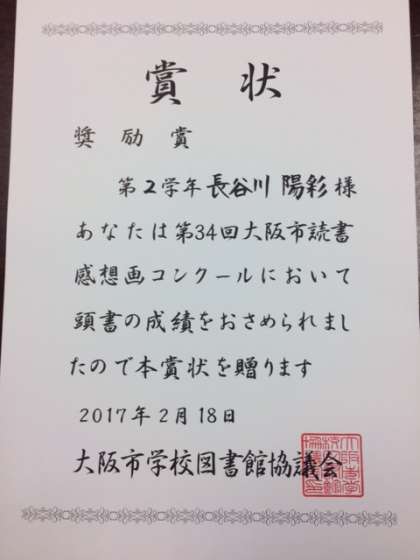 賞状
奨励賞
第2学年 長谷川 陽彩 様
あなたは第34回大阪市読書
感想画コンクールにおいて
頭書の成績をおさめられまし
たので本賞状を贈ります
2017年2月18日
大阪市学校図書館協議会